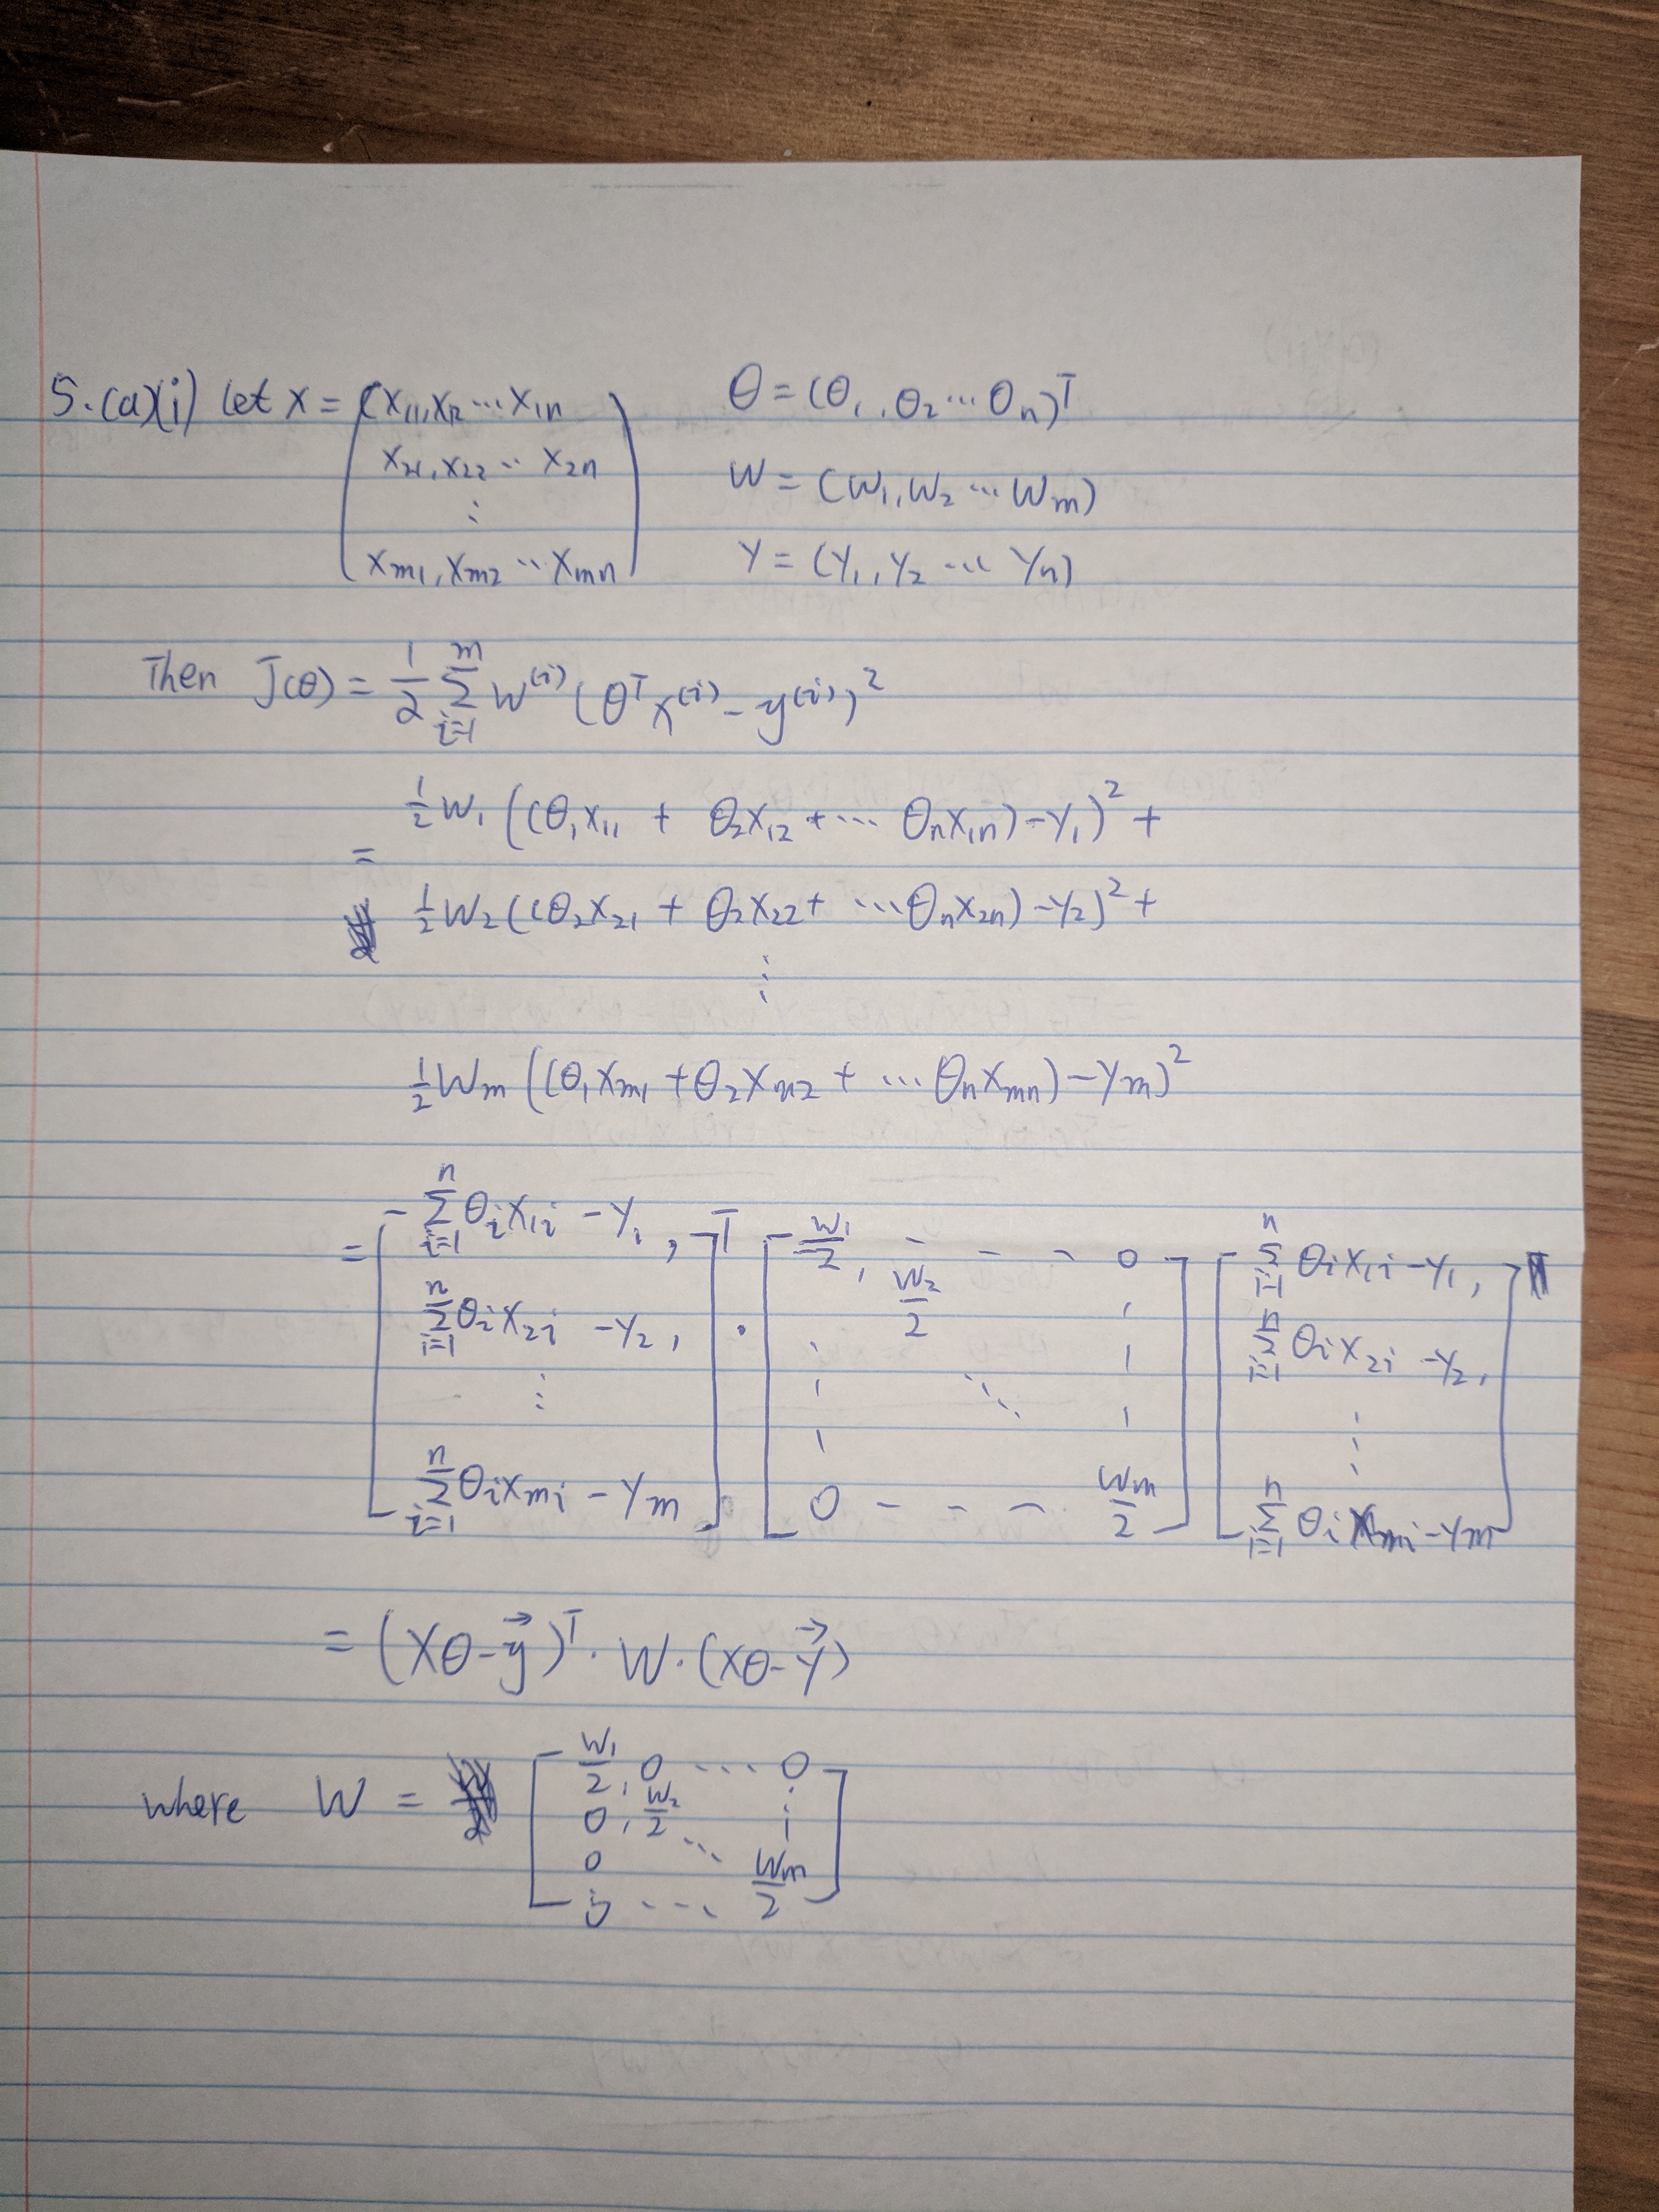 5.(a)(i) Let X = (x₁₁, x₁₂ ... x₁ₙ
x₂₁, x₂₂ ... x₂ₙ
⋮
xₘ₁, xₘ₂ ... xₘₙ)
θ = (θ₁, θ₂ ... θₙ)ᵀ
W = (W₁, W₂ ... Wₘ)
Y = (Y₁, Y₂ ... Yₙ)
Then J(θ) = 1/2 Σ_{i=1}^{m} W^{(i)} (θᵀ x^{(i)} - y^{(i)})²
= ½ W₁ ((θ₁x₁₁ + θ₂x₁₂ + ... θₙx₁ₙ) - Y₁)² +
½ W₂ ((θ₂x₂₁ + θ₂x₂₂ + ... θₙx₂ₙ) - Y₂)² +
⋮
½ Wₘ ((θ₁xₘ₁ + θ₂xₘ₂ + ... θₙxₘₙ) - Yₘ)²
= [ Σ_{i=1}^{n} θᵢx₁ᵢ - Y₁, ]ᵀ [ W₁/2, - - - 0 ] [ Σ_{i=1}^{n} θᵢx₁ᵢ - Y₁, ]
[ Σ_{i=1}^{n} θᵢx₂ᵢ - Y₂, ] · [ W₂/2 ] [ Σ_{i=1}^{n} θᵢx₂ᵢ - Y₂, ]
⋮ ⋱ ⋮
[ Σ_{i=1}^{n} θᵢxₘᵢ - Yₘ ] [ 0 - - - Wₘ/2 ] [ Σ_{i=1}^{n} θᵢxₘᵢ - Yₘ ]
= (Xθ - y⃗)ᵀ · W · (Xθ - y⃗)
where W = [ W₁/2, 0 ... 0
0, W₂/2 ⋮
0 ⋱ Wₘ/2
⋮ ... ]